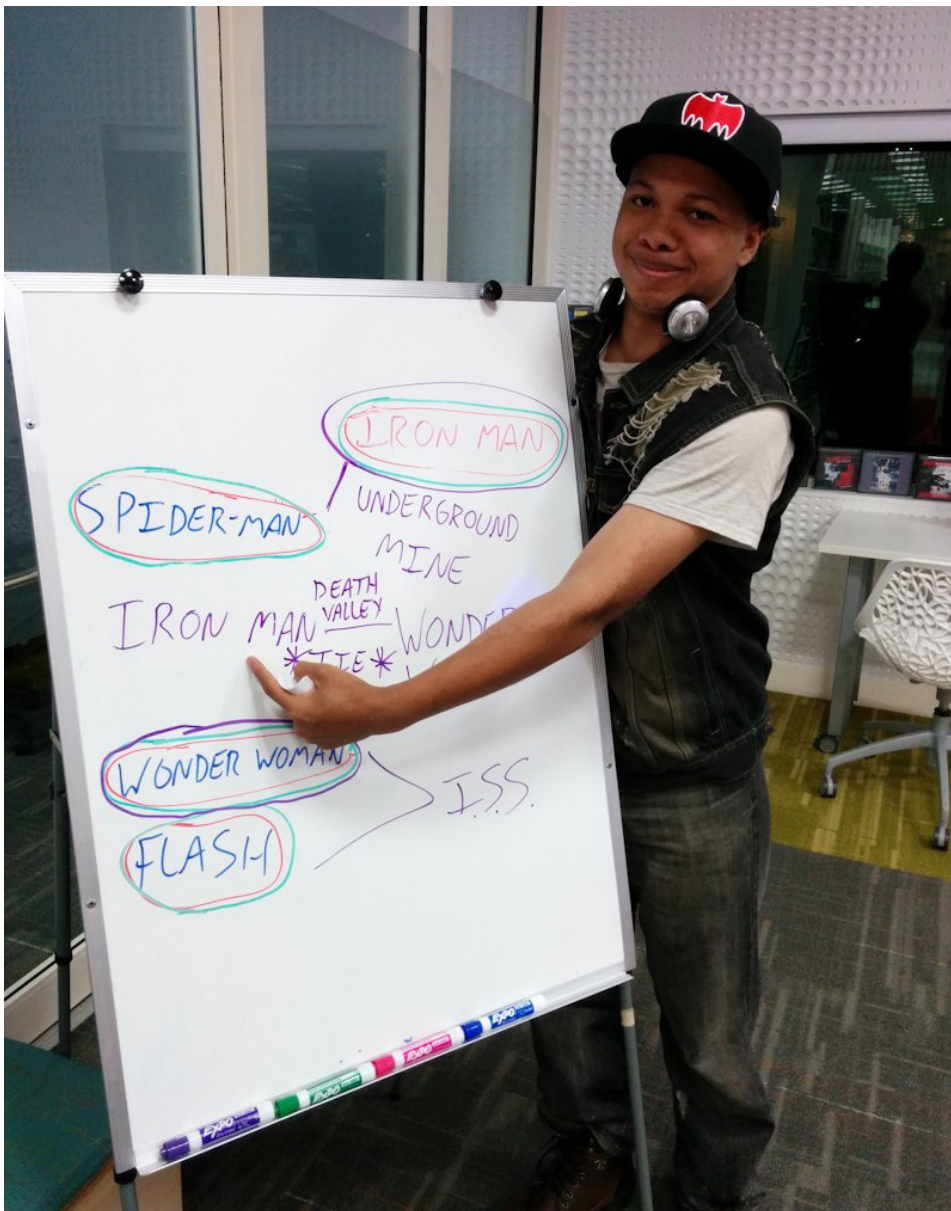 IRON MAN
SPIDER-MAN
UNDERGROUND
MINE
DEATH
VALLEY
IRON MAN
*TIE*
WONDER WOMAN
I.S.S.
FLASH
EXPO
EXPO
EXPO
EXPO